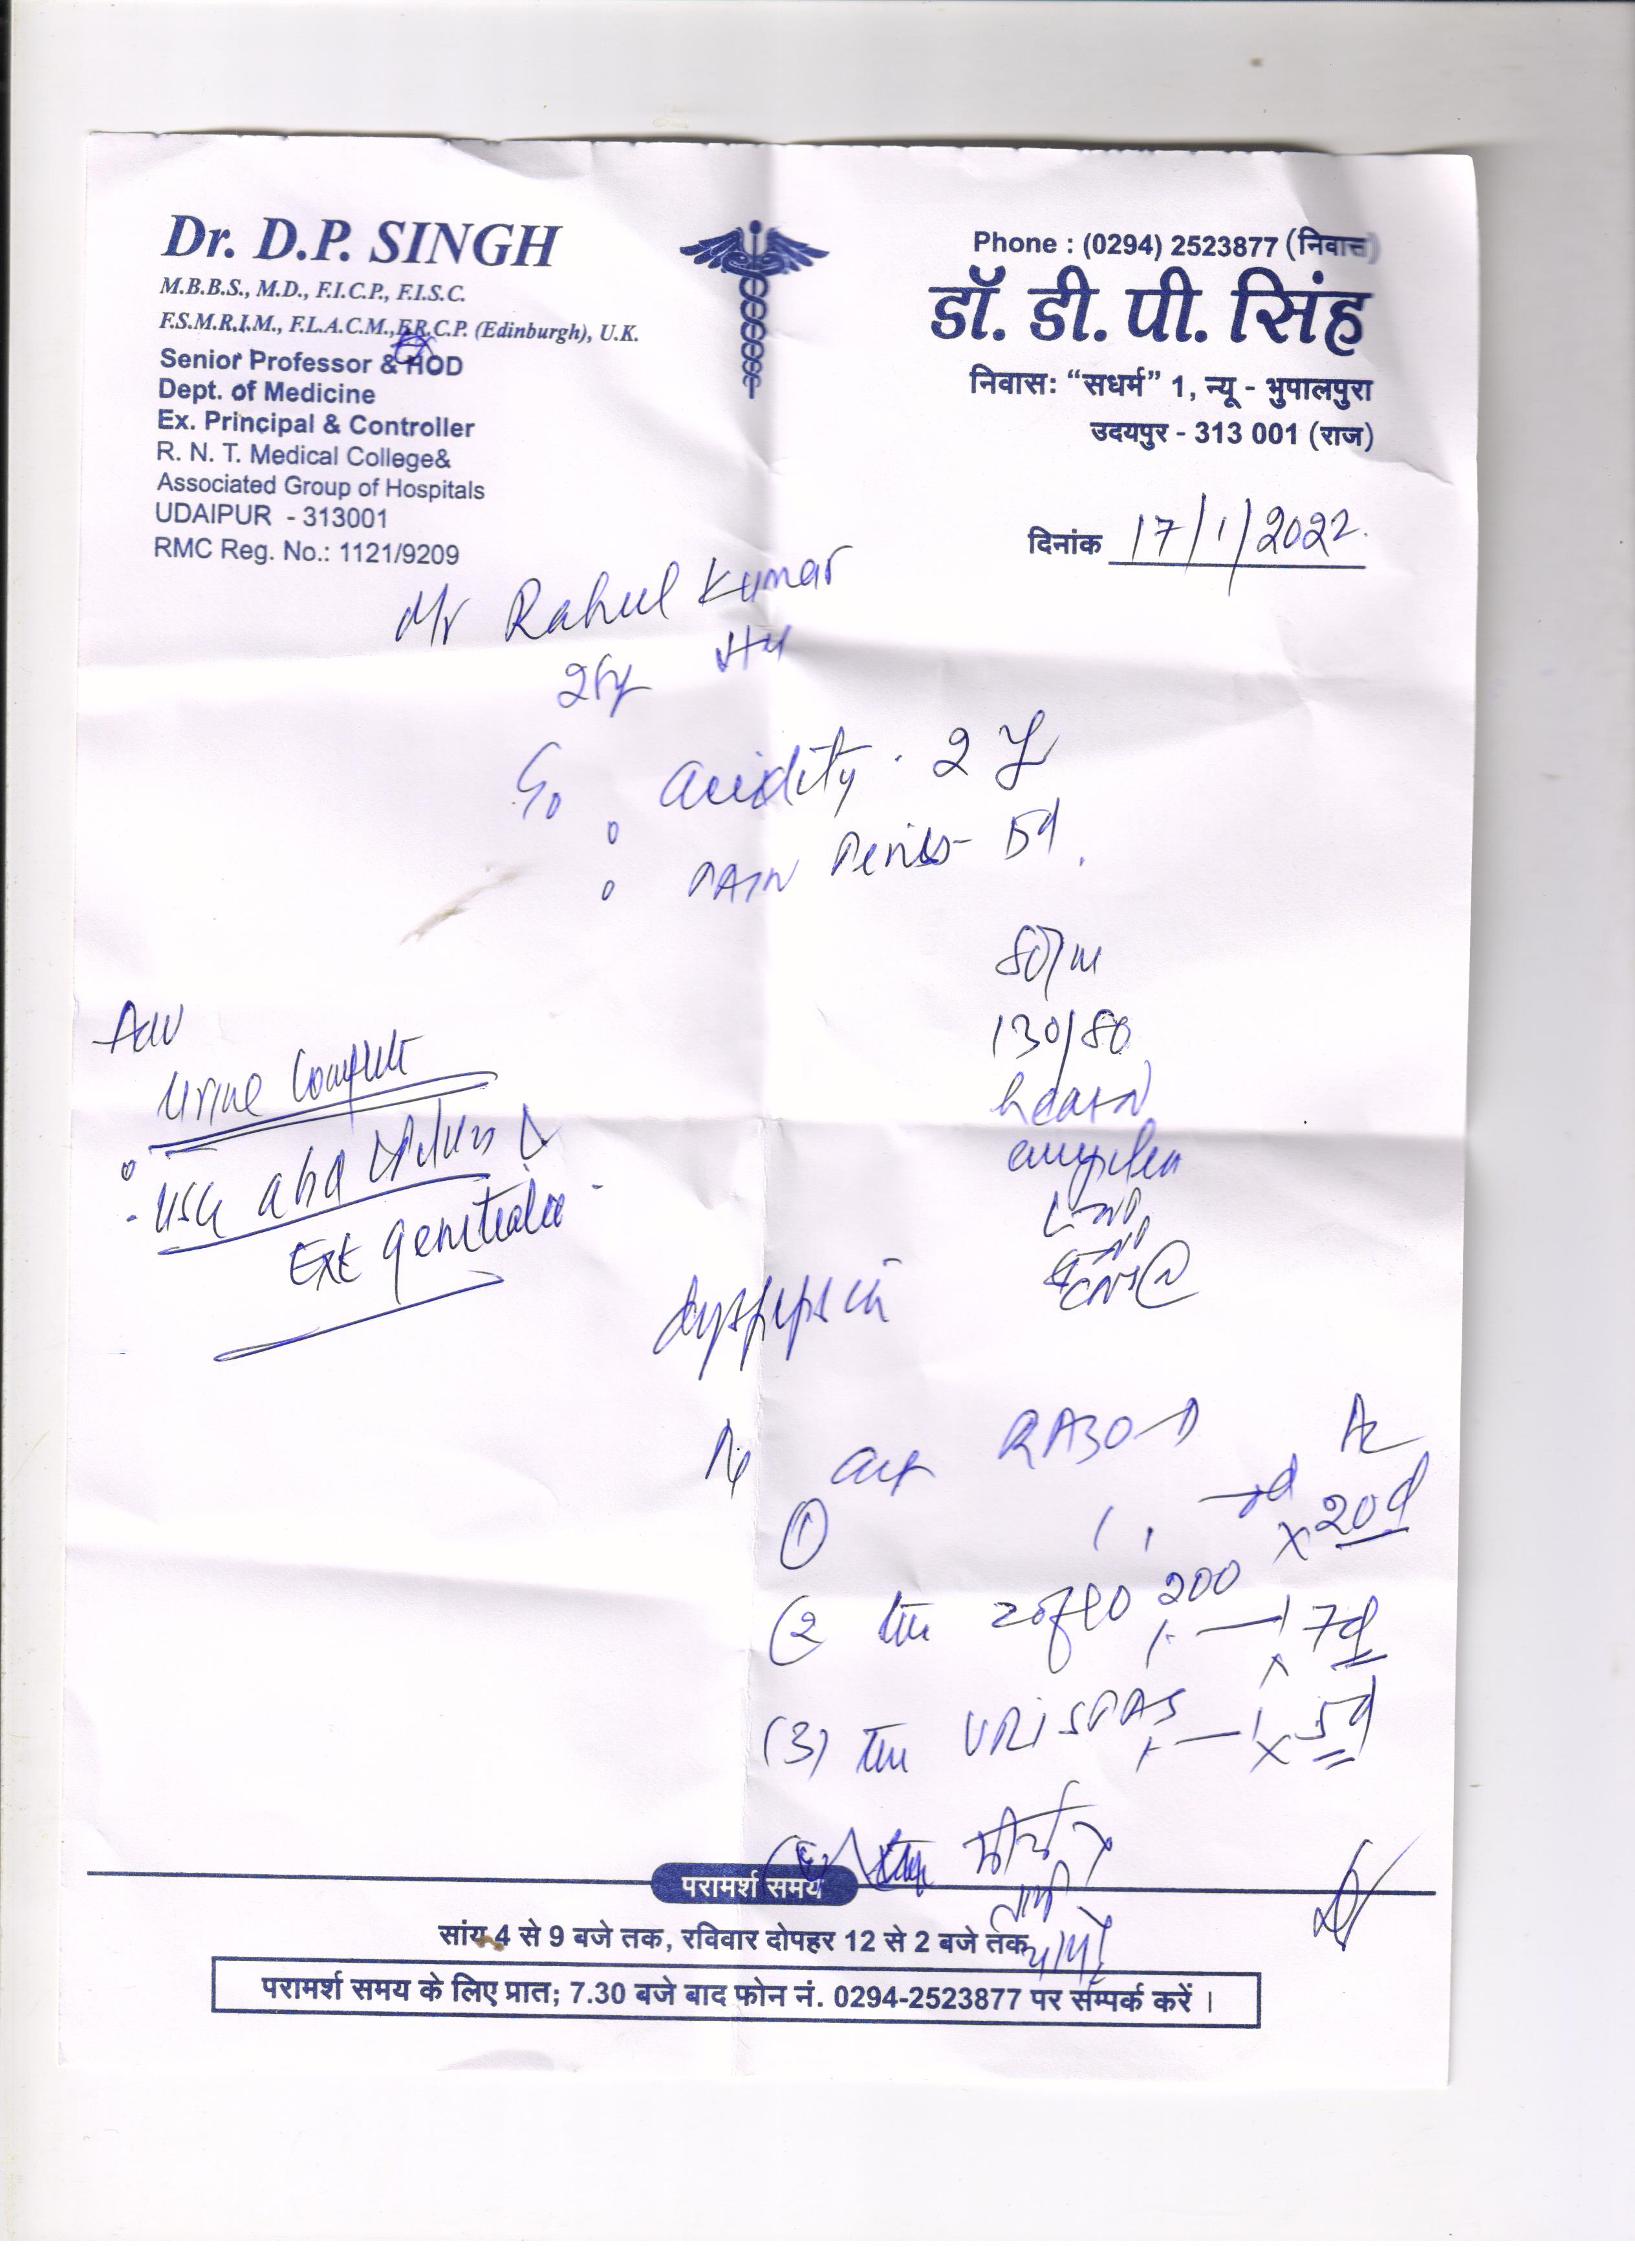 Dr. D.P. SINGH
M.B.B.S., M.D., F.I.C.P., F.I.S.C.
F.S.M.R.I.M., F.L.A.C.M., F.R.C.P. (Edinburgh), U.K.
Senior Professor & HOD
Dept. of Medicine
Ex. Principal & Controller
R. N. T. Medical College&
Associated Group of Hospitals
UDAIPUR - 313001
RMC Reg. No.: 1121/9209
Phone : (0294) 2523877 (निवास)
डॉ. डी. पी. सिंह
निवासः “सधर्म” 1, न्यू - भुपालपुरा
उदयपुर - 313 001 (राज)
दिनांक 17/1/2022.
Mr Rahul Kumar
acidity. 2 y
PAIN Penis- 5d.
80/m
130/80
Adv
Urine Complete
USG abd Pelvis
Ext genitalia
dyspepsia
Rx cap RAZO-D
① x 20d
(2 200 7d
(3) URISPAS x 5d
परामर्श समय
सांय 4 से 9 बजे तक, रविवार दोपहर 12 से 2 बजे तक
परामर्श समय के लिए प्रात; 7.30 बजे बाद फोन नं. 0294-2523877 पर सम्पर्क करें ।